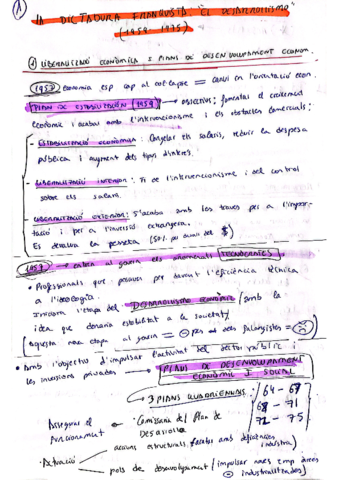 LA DICTADURA FRANQUISTA: "EL DESARROLLISMO"
(1959 - 1975)
① LIBERALITZACIÓ ECONÒMICA I PLANS DE DESENVOLUPAMENT ECONÒM.
1957 economia esp cap al col·lapse = canvi en l'orientació econ.
PLAN DE ESTABILIZACIÓN (1959) → OBJECTIUS: fomentar el creixement
econòmic i acabar amb l'intervencionisme i els obstacles comercials:
- ESTABILITZACIÓ ECONÒMICA: Congelar els salaris, reduir la despesa
pública i augment dels tipus d'interès.
- LIBERALITZACIÓ INTERIOR: Fi de l'intervencionisme i del control
sobre els salaris.
- LIBERALITZACIÓ EXTERIOR: S'acaba amb les traves per a l'impor-
tació i per a l'inversió estrangera.
Es devalua la pesseta (50% per davall del $)
1957 → entren al govern els anomenats TECNÒCRATES
• Professionals que posaven per davant l'eficiència tècnica
a l'ideologia.
Iniciaren l'etapa del DESARROLLISMO ECONÒMIC / amb la
idea que donaria estabilitat a la societat /
(aquesta nova etapa al govern = ⊖ pes dels falangistes =
• Amb l'objectiu d'impulsar l'activitat del sector públic i
les inversions privades → PLANS DE DESENVOLUPAMENT
ECONÒMIC I SOCIAL
→ 3 PLANS QUADRIENNALS: 64 - 67
68 - 71
72 - 75
Assegurar el funcionament → Comissaria del Plan de
Desarrollo
• Actuació → accions estructurals (factors amb deficiències
indústria)
→ pols de desenvolupament / impulsar noves emp àrees
⊖ industrialitzades)